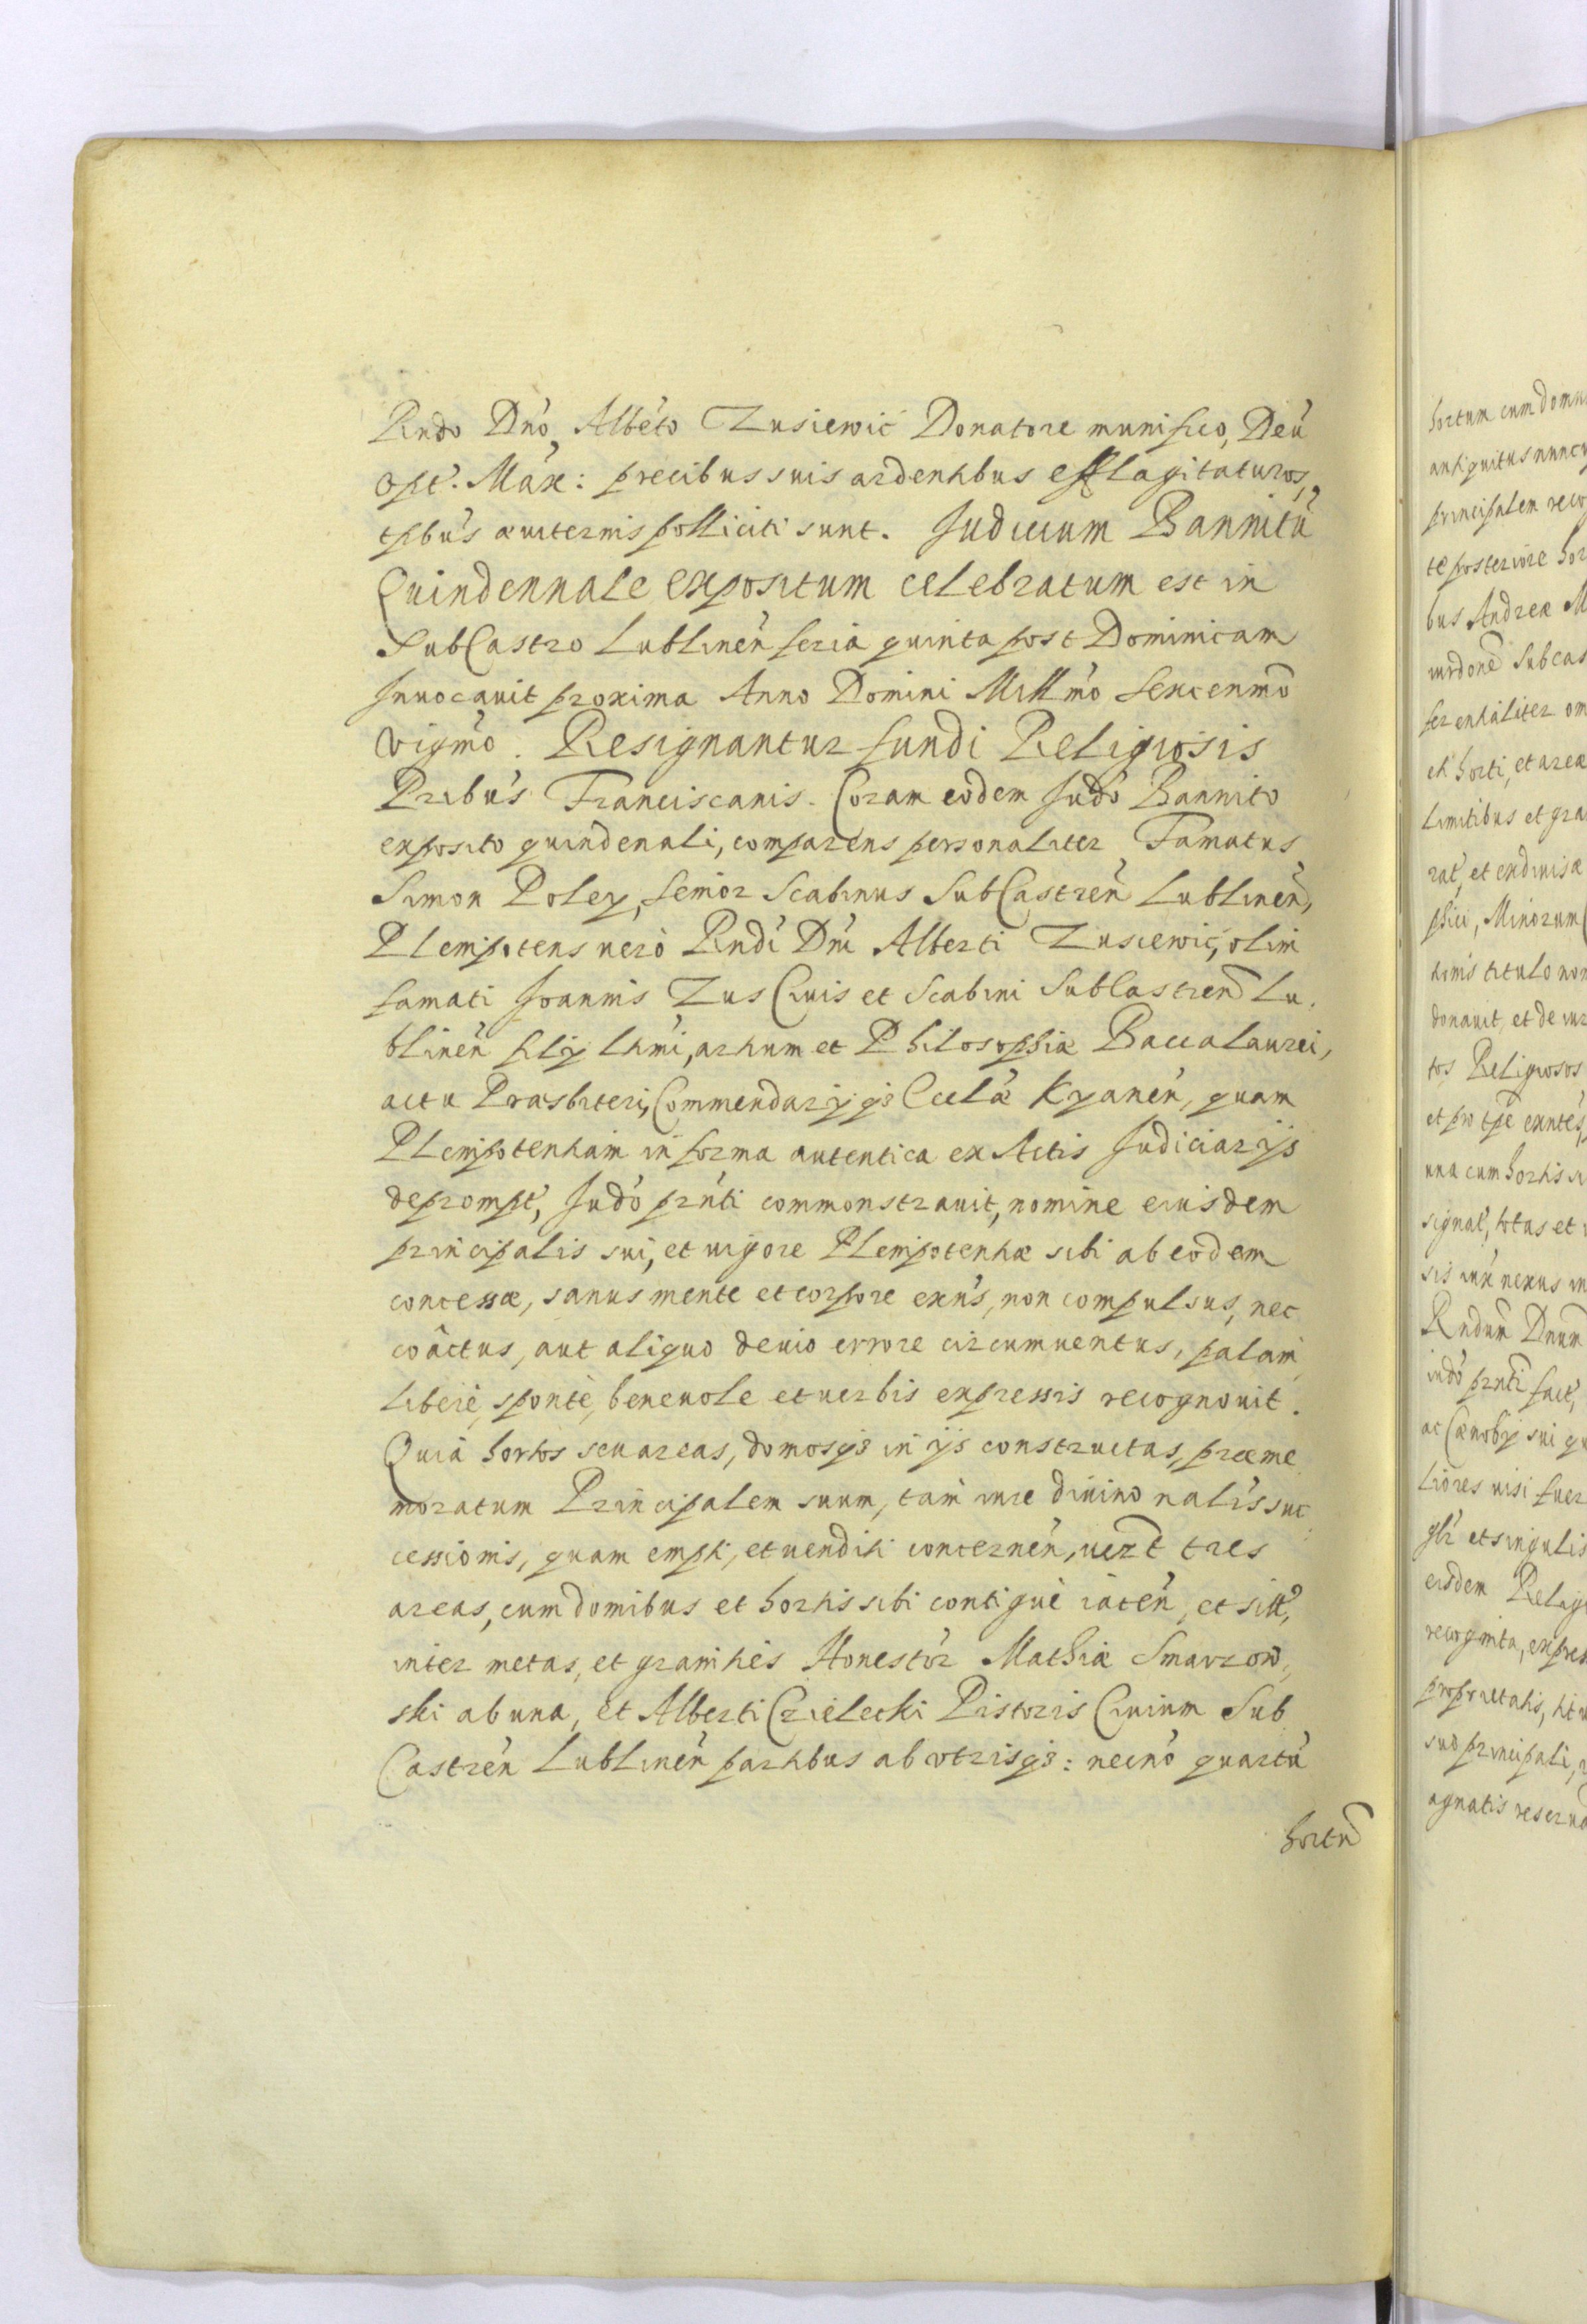 Rndo Dno, Albeto Zusiewic Donatore munifico, Deu
Opt. Max: precibus suis ardentibus efflagitaturos,
tpbus æuiternis polliciti sunt. Judicium Bannitu
Quindennale expositum celebratum est in
SubCastro Lublinen feria quinta post Dominicam
Inuocauit proxima Anno Domini Millmo Sexcenmo
vigmo. Resignantur fundi Religiosis
Pribus Franciscanis. Coram eodem Judo Bannito
exposito quindenali, comparens personaliter Famatus
Simon Poley, Senior Scabinus SubCastren Lublinen,
Plenipotens uero Rndi Dni Alberti Zusiewic, olim
famati Joannis Zus Ciuis et Scabini SubCastren Lu,
blinen filij Lttimi, artium et Philosophiæ Baccalaurei,
actu Præsbiteri, Commendarijq3 Eccl'æ Kyanen, quam
Plenipotentiam in forma autentica ex Actis Judiciarijs
deprompt, Judo prnti commonstrauit, nomine eiusdem
principalis sui, et uigore Plenipotentiæ sibi ab eodem
concessæ, sanus mente et corpore exns, non compulsus, nec
coactus, aut aliquo deuio errore circumuentus, palam
libere, sponte, beneuole et uerbis expressis recognouit.
Quia hortos seu areas, domosq3 in ijs constructas, præme
moratum Principalem suum, tam iure diuino nalis suc
cessionis, quam empti, et uenditi concernen, tres
areas, cum domibus et hortis sibi contigue iacen, et sitt,
inter metas, et granities Honestor Mathiæ Smarzow,
ski ab una, et Alberti Czielecki Pistoris Ciuium Sub
Castren Lublinen partibus ab vtrisq3: necno quartu
hortu
hortum cum domu
antiquitus nuncu
principalem reco
te posteriore hor
bus Andreæ M
iurdone Subcas
ferentialiter om
eti horti, et areæ
Limitibus et gra
rat, et endiuisæ
phici, Minorum C
tionis titulo non
donauit, et de iur
tos Religiosos
et pro tpe exntes,
una cum hortis
signat, totas et
sis iux nexus in
Rndum Dnum
iudo prnti fact,
ac Cænobij sui qu
liores uisi fuer
glr et singulis
eisdem Religi
recognita, expres
proprietatis, tit
suo principali,
agnatis reserua